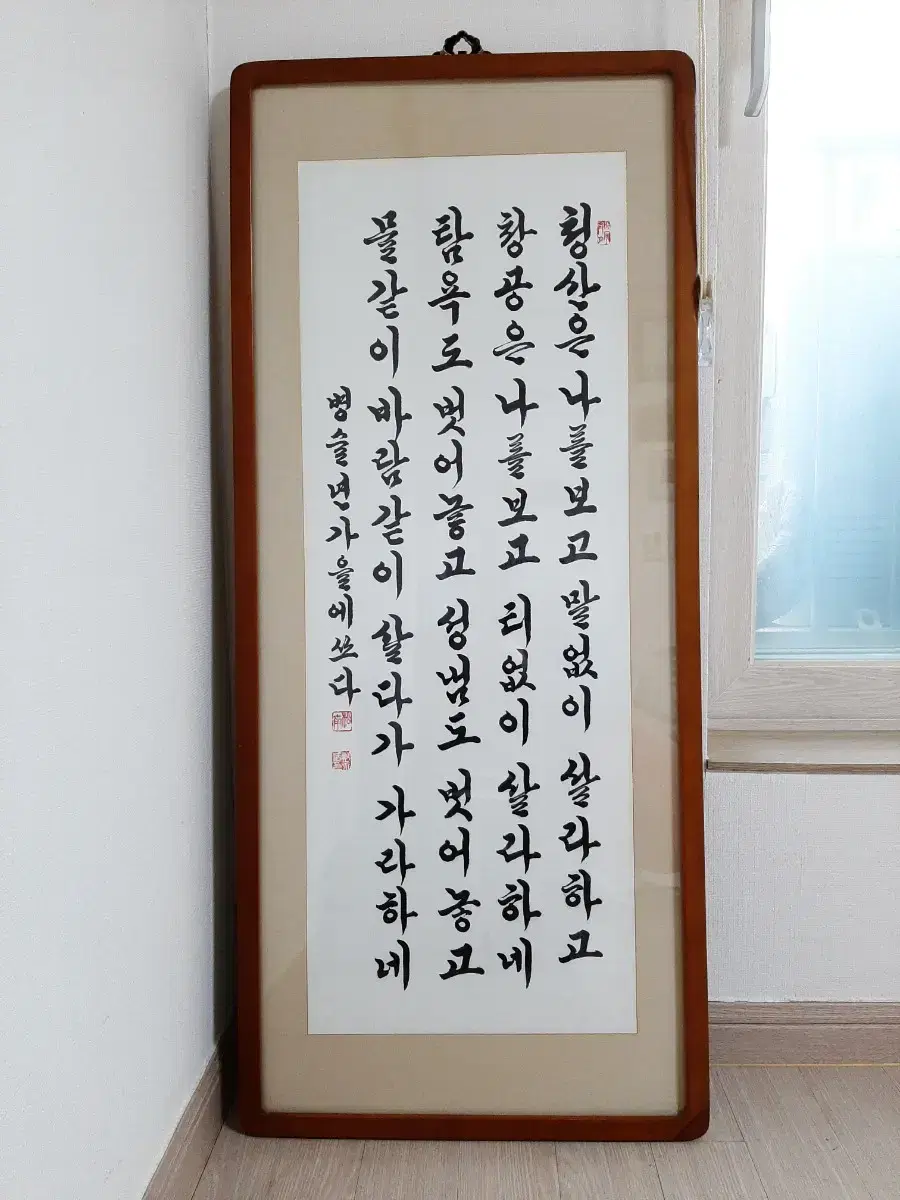 청산은 나를보고 말없이 살라하고
창공은 나를보고 티없이 살라하네
탐욕도 벗어놓고 성냄도 벗어놓고
물같이 바람같이 살다가 가라하네
병술년가을에쓰다